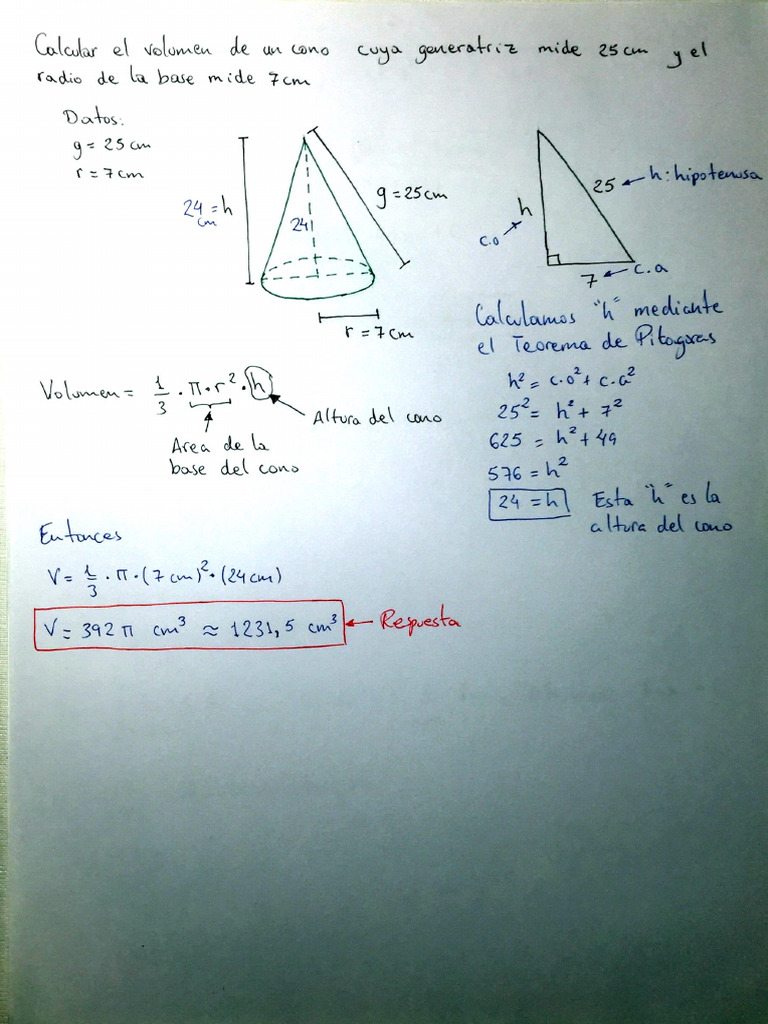 Calcular el volumen de un cono cuya generatriz mide 25cm y el
radio de la base mide 7cm
Datos:
g = 25cm
r = 7cm
24 = h
cm
24
g = 25cm
r = 7cm
h
25 ← h: hipotenusa
c.o
7 ← c.a
Calculamos "h" mediante
el Teorema de Pitagoras
h² = c.o² + c.a²
25² = h² + 7²
625 = h² + 49
576 = h²
24 = h
Esta "h" es la
altura del cono
Volumen = 1/3 · π · r² · h
Altura del cono
Area de la
base del cono
Entonces
V = 1/3 · π · (7cm)² · (24cm)
V = 392 π cm³ ≈ 1231,5 cm³ ← Respuesta